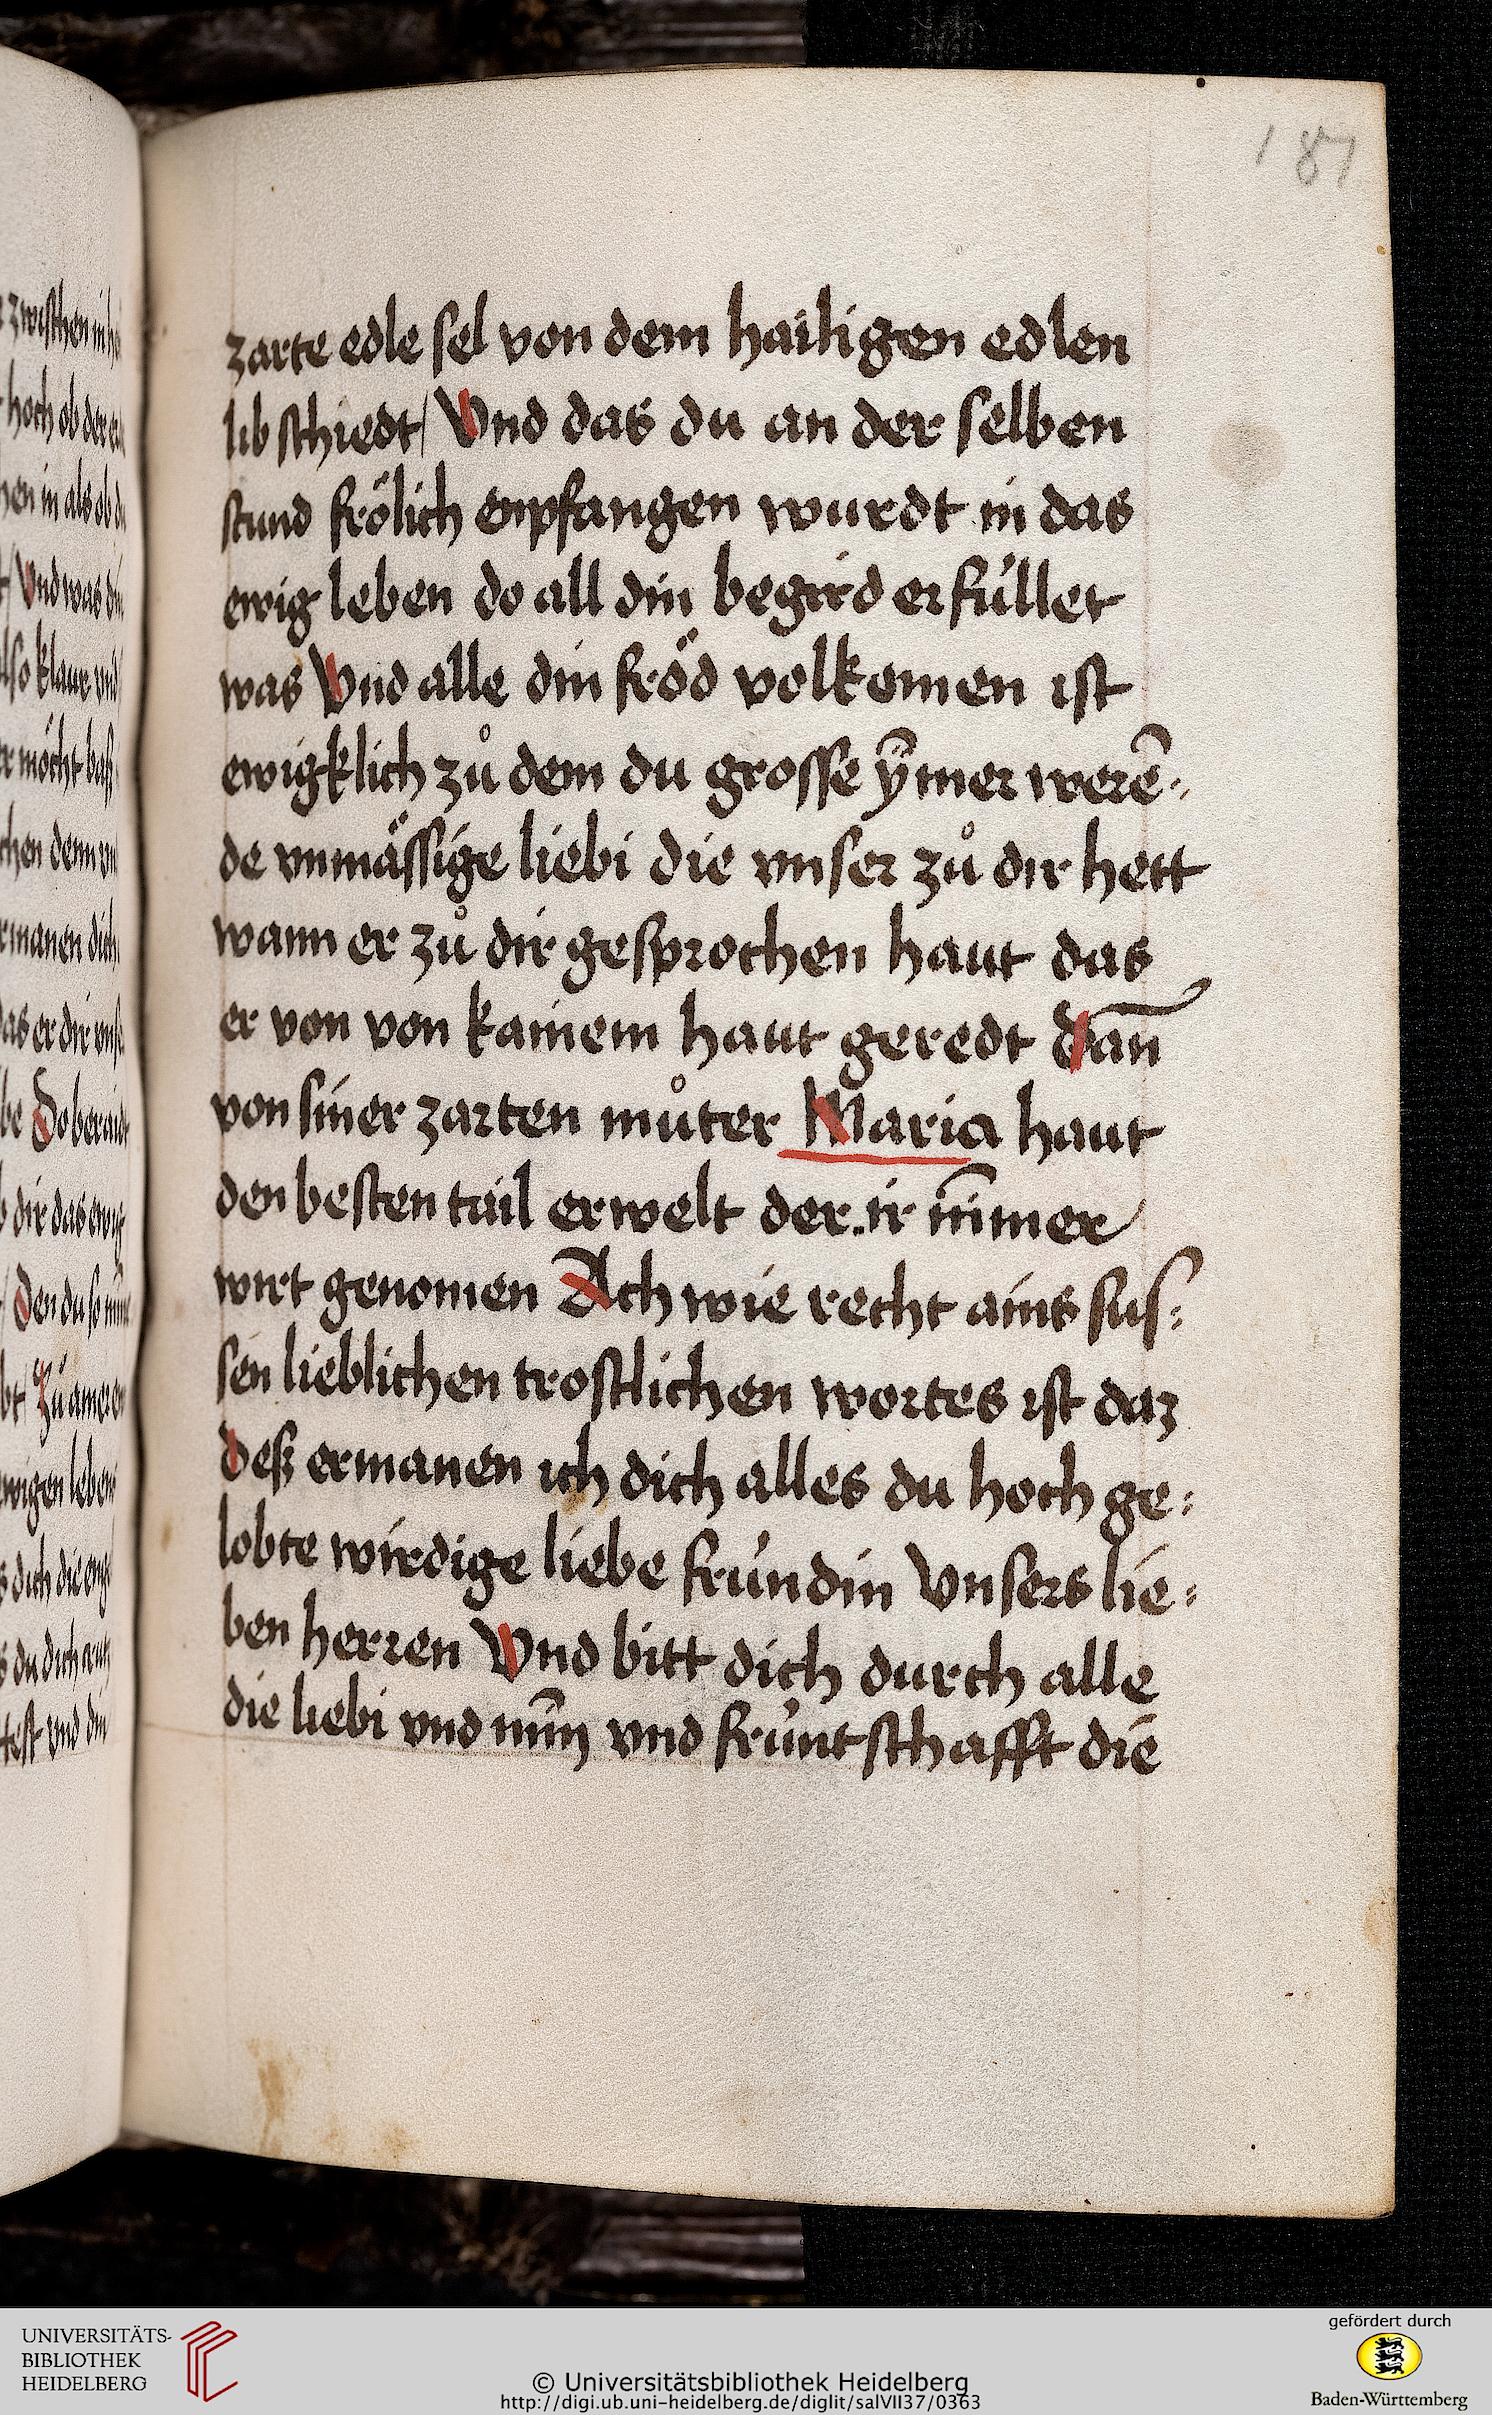 187
zarte edle sel von dem hailigen edlen
lib schiedt / Vnd das du an der selben
stund frölich enpfangen wurdt in das
ewig leben do all din begird erfúllet
was Vnd alle din fröd volkomen ist
ewigklich zů dem du grosse ÿm̄er werē-
de vnmässige liebi die vnser zů dir hett
wann er zů dir gesprochen haut das
er von von kainem haut geredt dan̄
von siner zarten můter Maria haut
den besten tail erwelt der ir nīmer
wirt genomen Ach wie recht ains sus-
sen lieblichen trostlichen wortes ist daz
deß ermanen ich dich alles du hoch ge-
lobte wirdige liebe frúndin Vnsers lie-
ben herren Vnd bitt dich durch alle
die liebi vnd mīn vnd frúntschafft die
UNIVERSITÄTS-
BIBLIOTHEK
HEIDELBERG
© Universitätsbibliothek Heidelberg
http://digi.ub.uni-heidelberg.de/diglit/salVII37/0363
gefördert durch
Baden-Württemberg